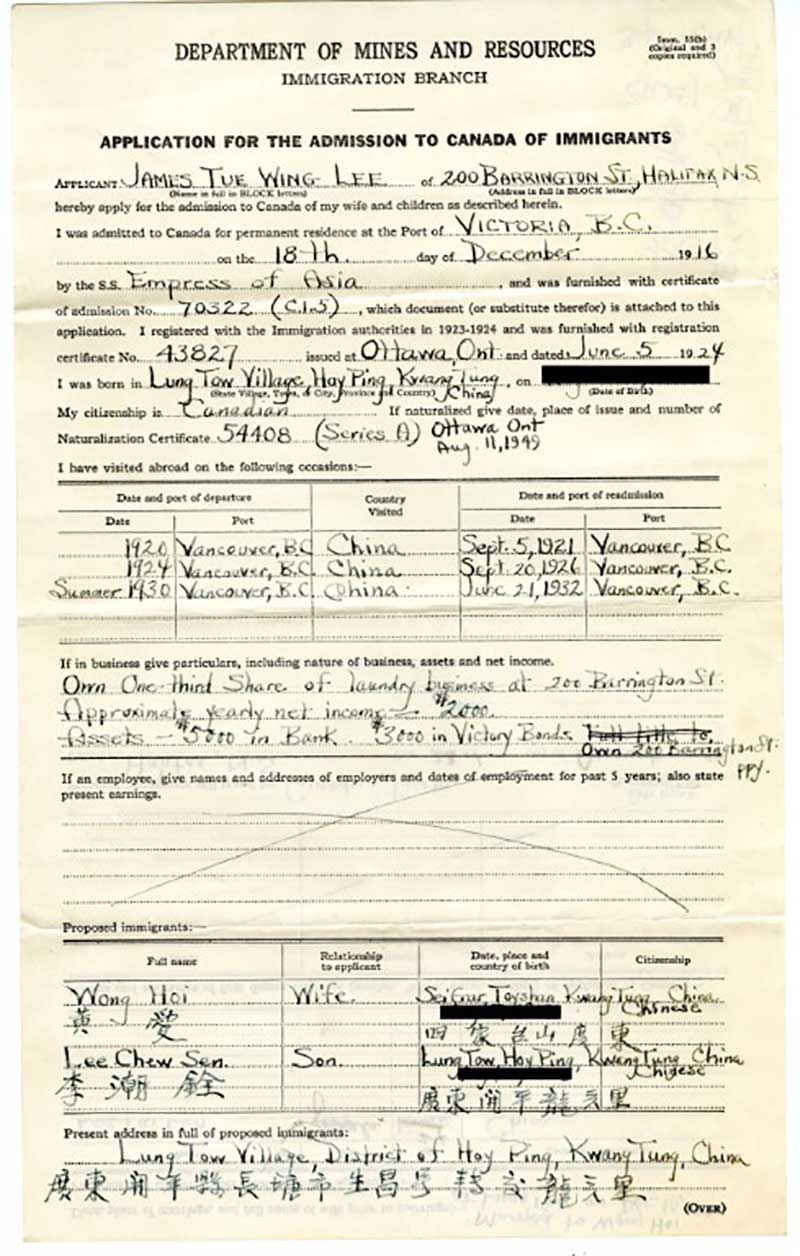 Imm. 55(b)
(Original and 3
copies required)
DEPARTMENT OF MINES AND RESOURCES
IMMIGRATION BRANCH
APPLICATION FOR THE ADMISSION TO CANADA OF IMMIGRANTS
APPLICANT JAMES TUE WING LEE of 200 BARRINGTON ST, HALIFAX N.S.
(Name in full in BLOCK letters) (Address in full in BLOCK letters)
hereby apply for the admission to Canada of my wife and children as described herein.
I was admitted to Canada for permanent residence at the Port of VICTORIA, B.C.
on the 18th. day of December 1916
by the s.s. Empress of Asia, and was furnished with certificate
of admission No. 70322 (C.I.5), which document (or substitute therefor) is attached to this
application. I registered with the Immigration authorities in 1923-1924 and was furnished with registration
certificate No. 43827 issued at Ottawa, Ont and dated June 5 1924
I was born in Lung Tow Village, Hoy Ping, Kwang Tung, on
(State Village, Town, or City, Province and Country) China (Date of Birth)
My citizenship is Canadian If naturalized give date, place of issue and number of
Naturalization Certificate 54408 (Series A) Ottawa Ont
Aug. 11, 1949
I have visited abroad on the following occasions:—
Date and port of departure Country Visited Date and port of readmission
Date Port Date Port
1920 Vancouver, B.C China Sept. 5, 1921 Vancouver, B.C
1924 Vancouver, B.C. China Sept. 20, 1926 Vancouver, B.C.
Summer 1930 Vancouver, B.C. China June 21, 1932 Vancouver, B.C.
If in business give particulars, including nature of business, assets and net income.
Own One-third Share of laundry business at 200 Barrington St.
Approximate yearly net income — $2000.
Assets — $5000 in Bank. $3000 in Victory Bonds. Full title to.
Own 200 Barrington St.
PPY.
If an employee, give names and addresses of employers and dates of employment for past 5 years; also state
present earnings.
Proposed immigrants:—
Full name Relationship to applicant Date, place and country of birth Citizenship
Wong Hoi Wife. Toyshan Kwang Tung China
Chinese
黃愛 四家台山廣東
Lee Chew Sen. Son. Lung Tow, Hoy Ping, Kwang Tung China
Chinese
李潮銓
廣東開平龍立里
Present address in full of proposed immigrants:
Lung Tow Village, District of Hoy Ping, Kwang Tung, China
廣東開平縣長塘市生昌号轉交龍立里
(OVER)